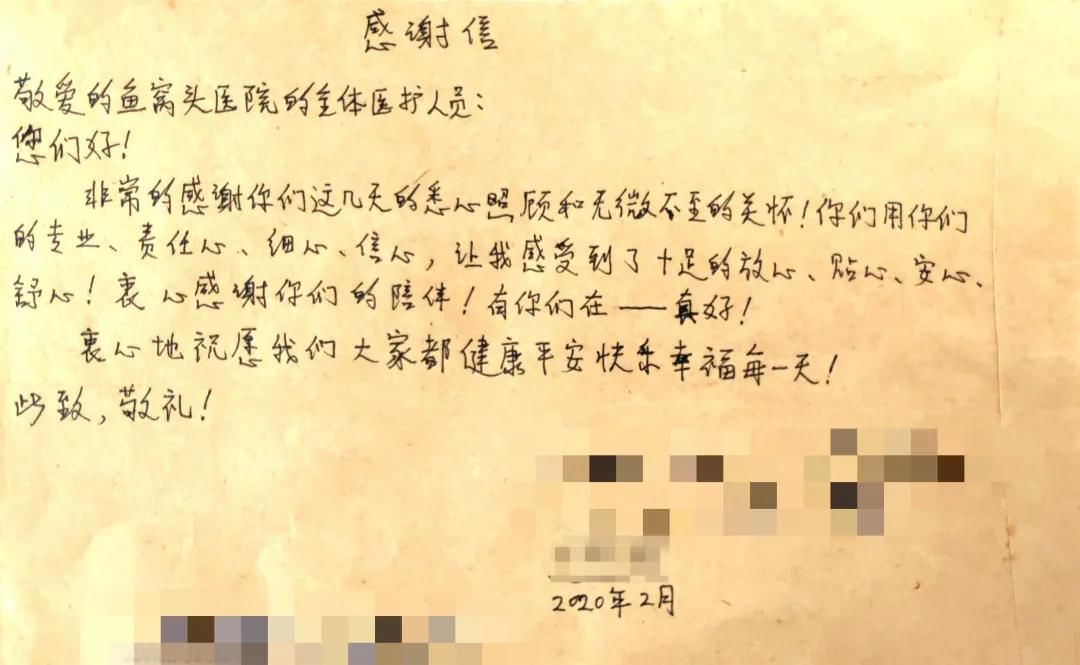 感谢信
敬爱的鱼窝头医院的全体医护人员：
您们好！
非常的感谢你们这几天的悉心照顾和无微不至的关怀！你们用你们
的专业、责任心、细心、信心，让我感受到了十足的放心、贴心、安心、
舒心！衷心感谢你们的陪伴！有你们在——真好！
衷心地祝愿我们大家都健康平安快乐幸福每一天！
此致，敬礼！
2020年2月